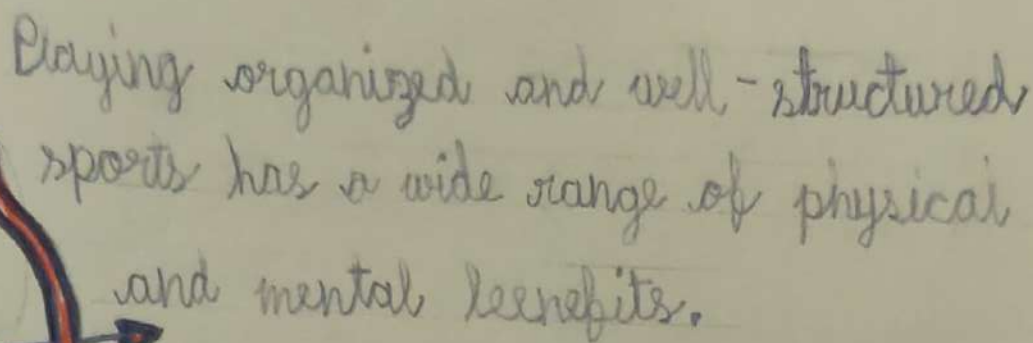 Playing organized and well-structured
sports has a wide range of physical
and mental benefits.